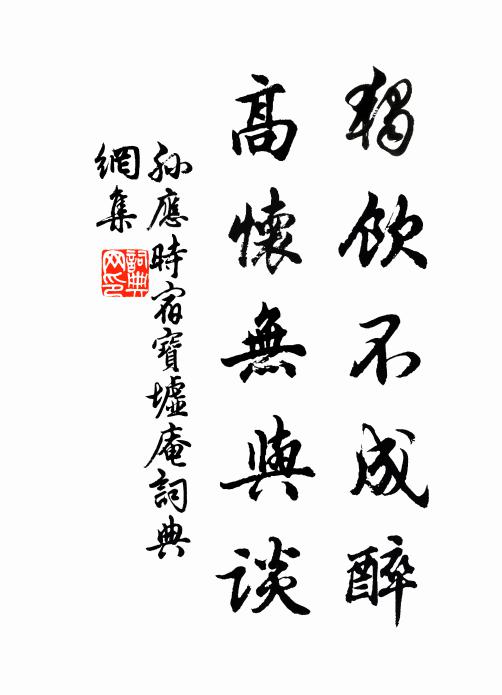 獨飲不成醉
高懷無與談
孫應時宿寶墟庵詞典
網集
詞典
网民